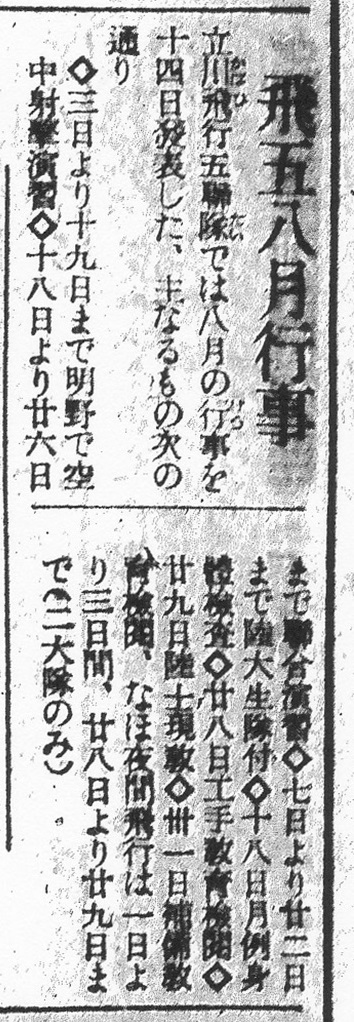 飛五八月行事
立川飛行五聯隊では八月の行事を
十四日発表した、主なるもの次の
通り
◇三日より十九日まで明野で空
中射撃演習◇十八日より廿六日
まで聯合演習◇七日より廿二日
まで陸大生隊付◇十八日月例身
體検査◇廿八日工手教育検閲◇
廿九日陸士現教◇卅一日補備教
育検閲、なほ夜間飛行は一日よ
り三日間、廿八日より廿九日ま
で(二大隊のみ)